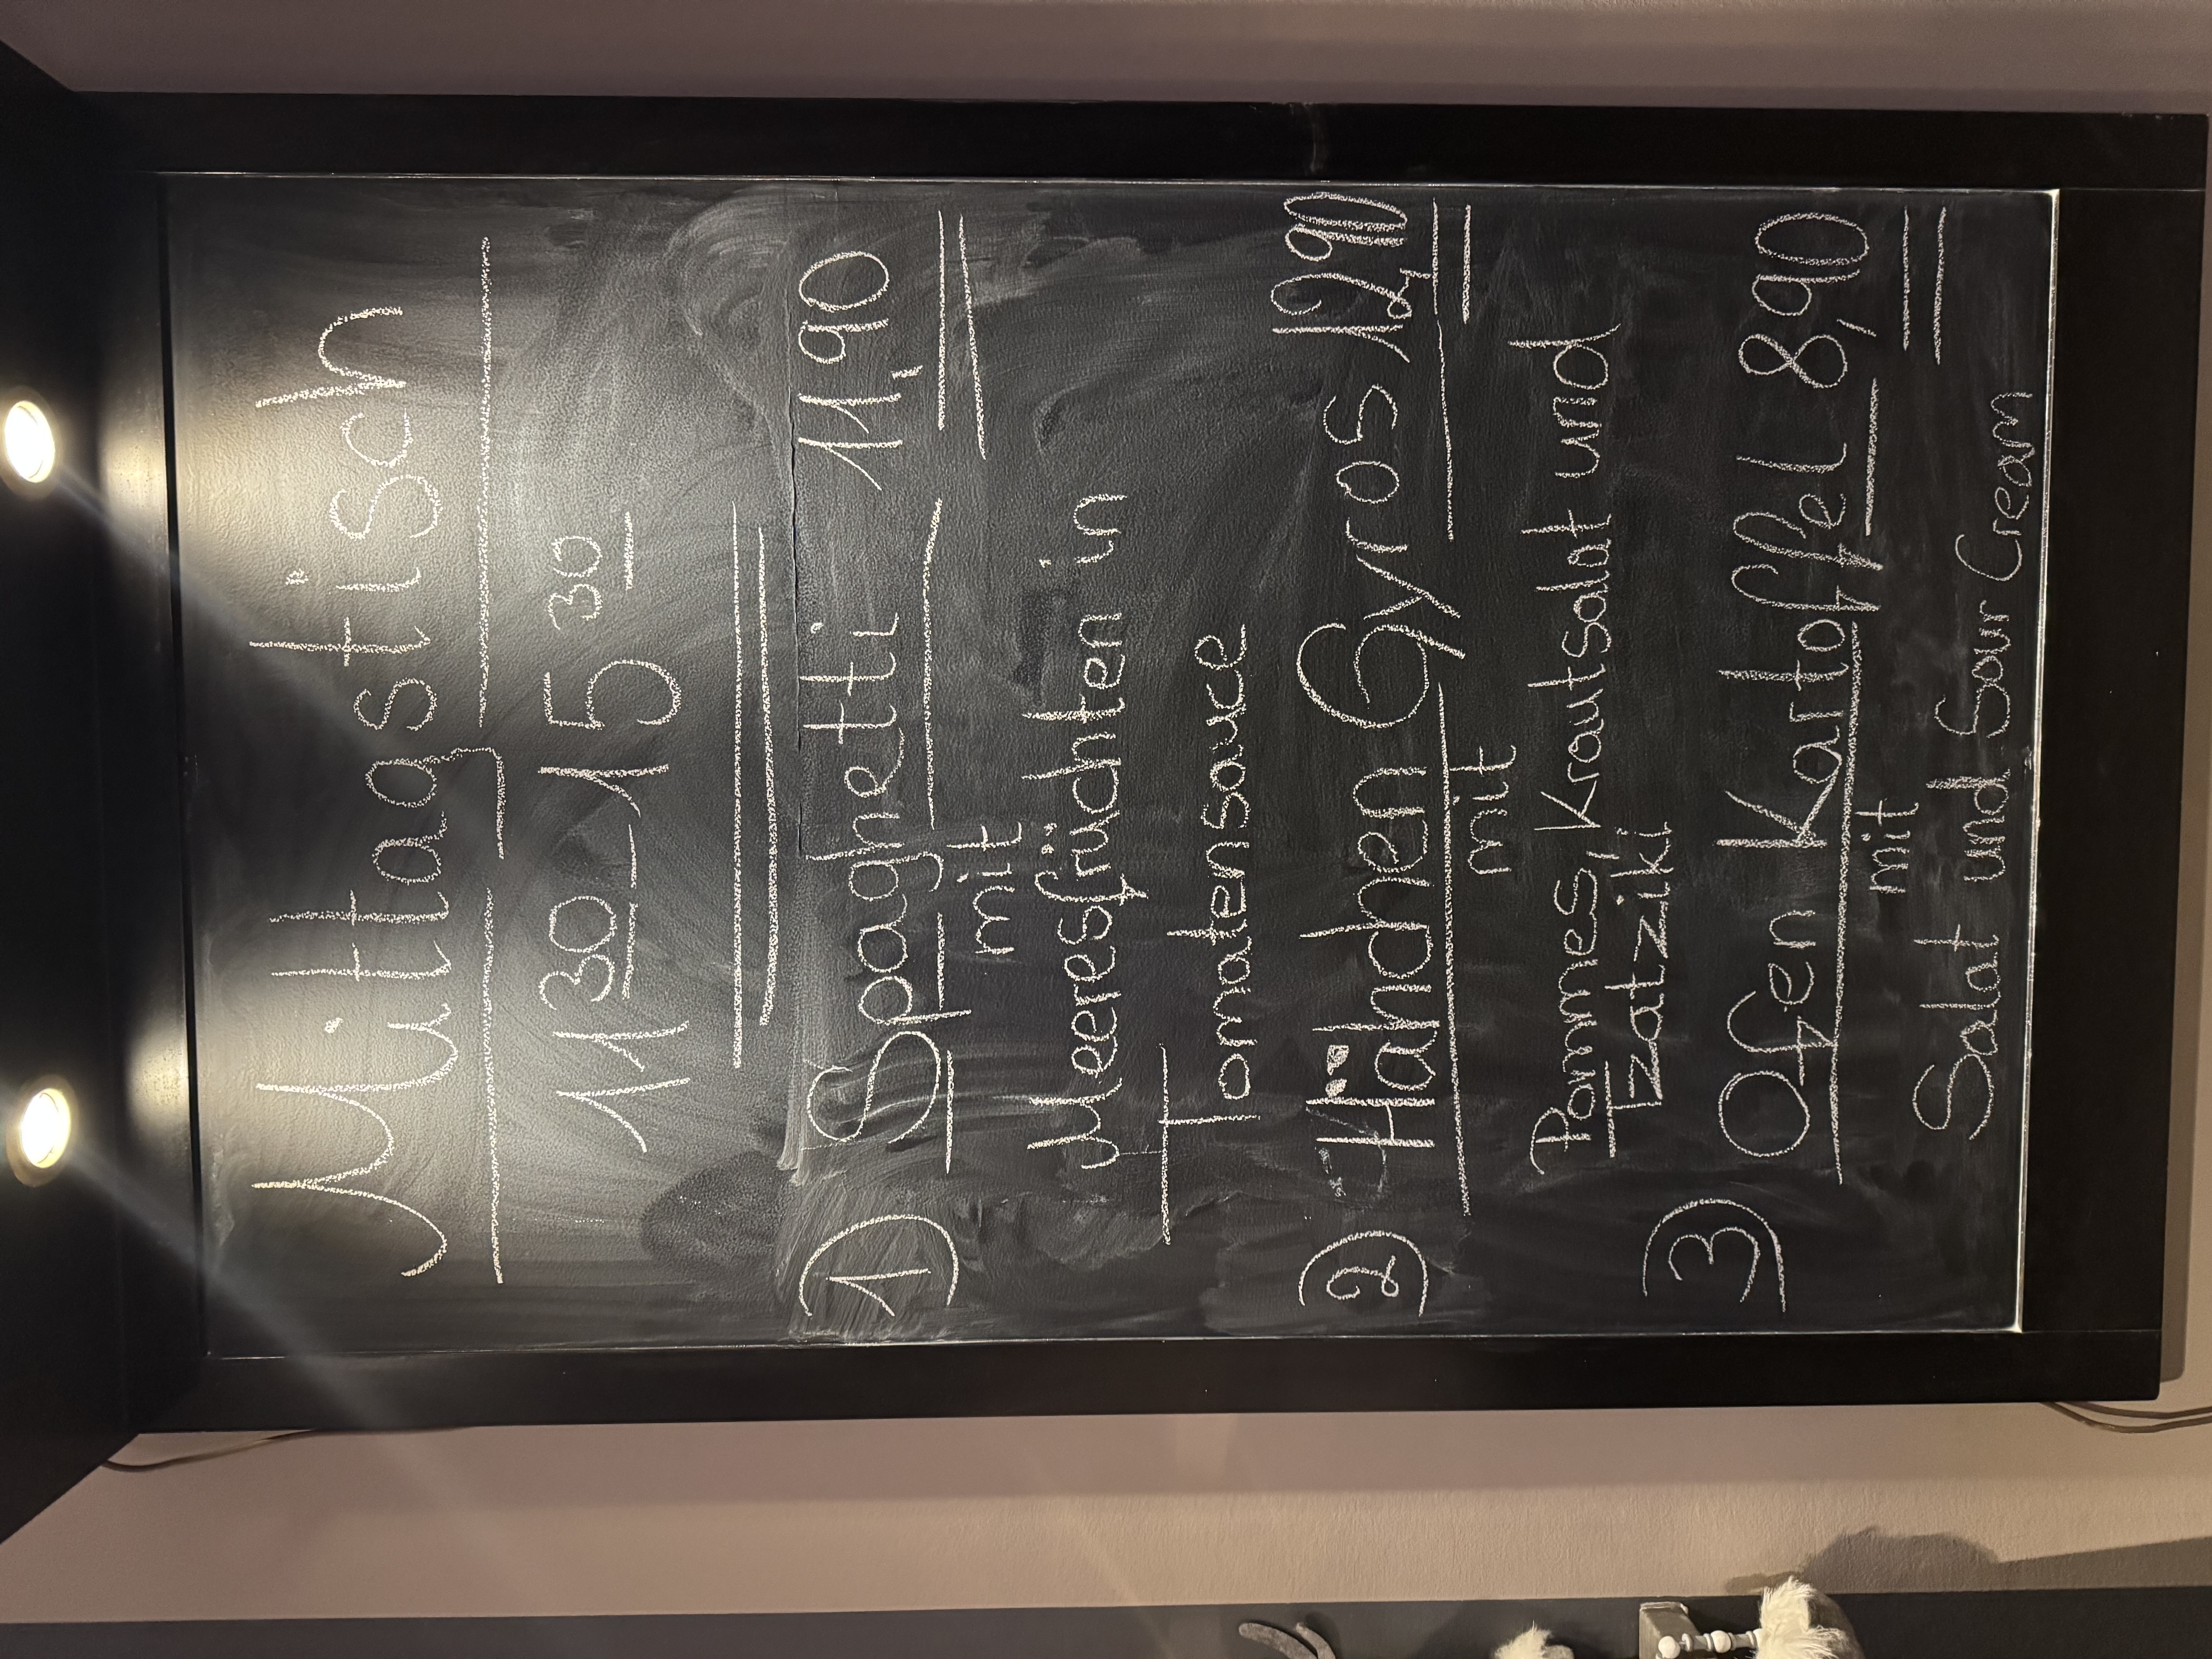 Mittagstisch
11³⁰ - 15³⁰
① Spaghetti 11,90
mit
Meeresfrüchten in
Tomatensauce
② Hähnchen Gyros 12,90
mit
Pommes, Krautsalat und
Tzatziki
③ Ofen Kartoffel 8,90
mit
Salat und Sour Cream